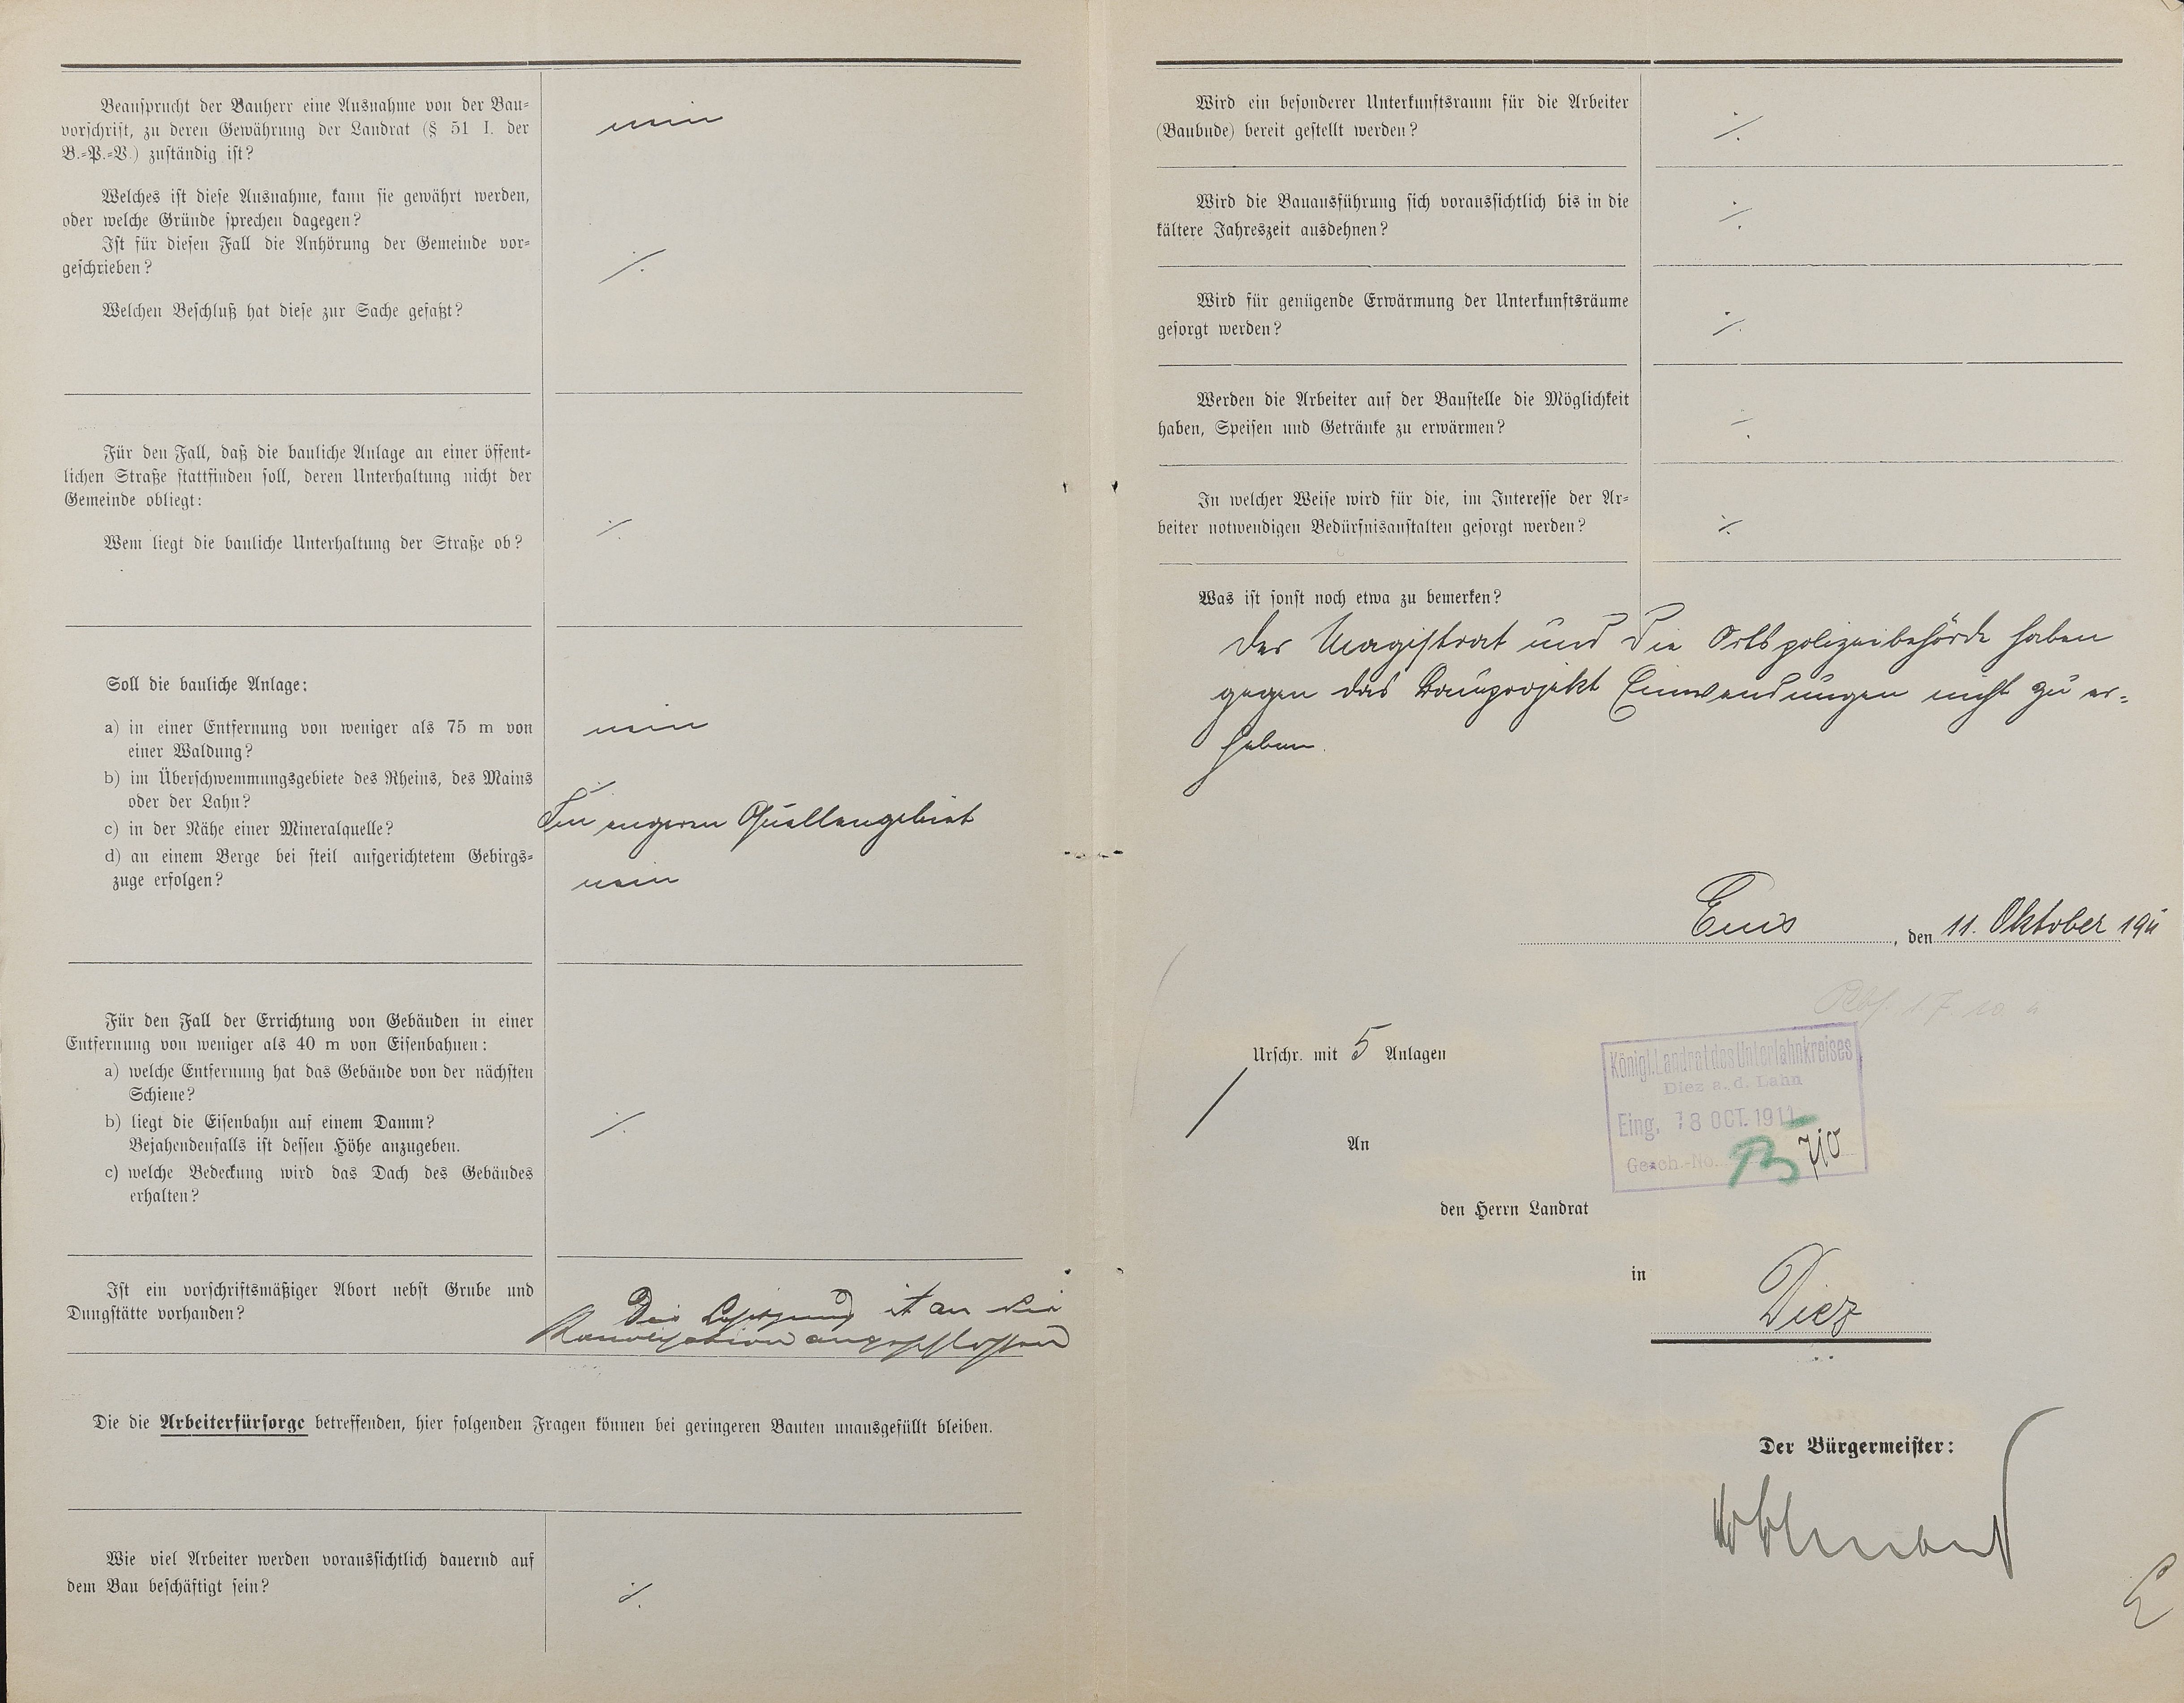 Beansprucht der Bauherr eine Ausnahme von der Bau-
vorschrift, zu deren Gewährung der Landrat (§ 51 I. der
B.-P.-V.) zuständig ist?
nein
Welches ist diese Ausnahme, kann sie gewährt werden,
oder welche Gründe sprechen dagegen?
Ist für diesen Fall die Anhörung der Gemeinde vor-
geschrieben?
./.
Welchen Beschluß hat diese zur Sache gefaßt?
Für den Fall, daß die bauliche Anlage an einer öffent-
lichen Straße stattfinden soll, deren Unterhaltung nicht der
Gemeinde obliegt:
Wem liegt die bauliche Unterhaltung der Straße ob?
./.
Soll die bauliche Anlage:
a) in einer Entfernung von weniger als 75 m von
einer Waldung?
nein
b) im Überschwemmungsgebiete des Rheins, des Mains
oder der Lahn?
./.
c) in der Nähe einer Mineralquelle?
Im engeren Quellengebiet
d) an einem Berge bei steil aufgerichtetem Gebirgs-
zuge erfolgen?
nein
Für den Fall der Errichtung von Gebäuden in einer
Entfernung von weniger als 40 m von Eisenbahnen:
a) welche Entfernung hat das Gebäude von der nächsten
Schiene?
b) liegt die Eisenbahn auf einem Damm?
Bejahendenfalls ist dessen Höhe anzugeben.
./.
c) welche Bedeckung wird das Dach des Gebäudes
erhalten?
Ist ein vorschriftsmäßiger Abort nebst Grube und
Dungstätte vorhanden?
Die Besitzung ist an die
Kanalisation angeschlossen
Die die Arbeiterfürsorge betreffenden, hier folgenden Fragen können bei geringeren Bauten unausgefüllt bleiben.
Wie viel Arbeiter werden voraussichtlich dauernd auf
dem Bau beschäftigt sein?
./.
Wird ein besonderer Unterkunftsraum für die Arbeiter
(Baubude) bereit gestellt werden?
./.
Wird die Bauausführung sich voraussichtlich bis in die
kältere Jahreszeit ausdehnen?
./.
Wird für genügende Erwärmung der Unterkunftsräume
gesorgt werden?
./.
Werden die Arbeiter auf der Baustelle die Möglichkeit
haben, Speisen und Getränke zu erwärmen?
./.
In welcher Weise wird für die, im Interesse der Ar-
beiter notwendigen Bedürfnisanstalten gesorgt werden?
./.
Was ist sonst noch etwa zu bemerken?
Der Magistrat und die Ortspolizeibehörde haben
gegen das Bauprojekt Einwendungen nicht zu er-
heben.
Ems, den 11. Oktober 1911
17. 10. 11
Urschr. mit 5 Anlagen
Königl. Landrat des Unterlahnkreises
Diez a. d. Lahn
Eing. 18 OCT. 1911
Gesch.-No. B 710
An
den Herrn Landrat
in
Diez
Der Bürgermeister: